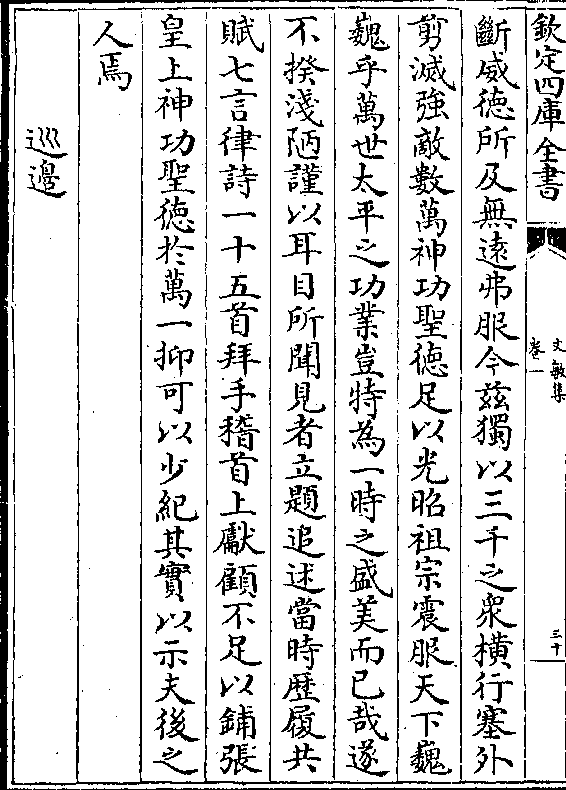 欽定四庫全書
文敏集
卷一
三十
斷威德所及無遠弗服今茲獨以三千之衆横行塞外
剪滅強敵數萬神功聖徳足以光昭祖宗震服天下巍
巍乎萬世太平之功業豈特為一時之盛美而已哉遂
不揆淺陋謹以耳目所聞見者立題追述當時歴履共
賦七言律詩一十五首拜手稽首上獻顧不足以鋪張
皇上神功聖徳於萬一抑可以少紀其實以示夫後之
人焉
巡邊